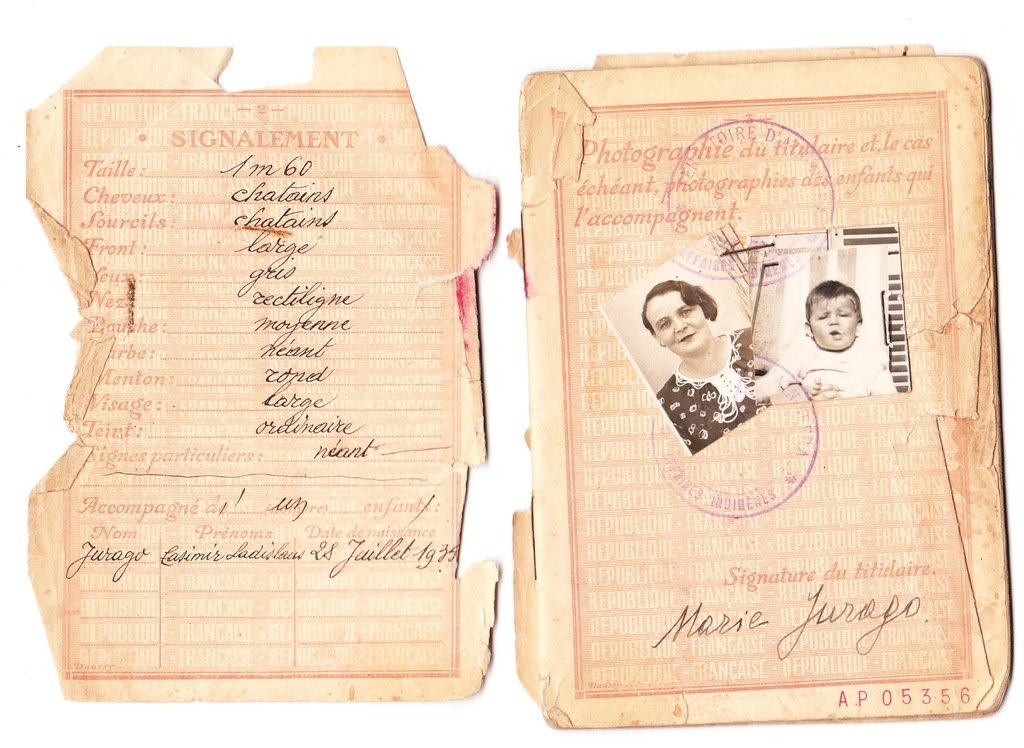 - 2 -
• SIGNALEMENT •
Taille: 1m60
Cheveux: chatains
Sourcils: chatains
Front: large
Yeux: gris
Nez: rectiligne
Bouche: moyenne
arbe: néant
Menton: rond
Visage: large
Teint: ordinaire
Signes particuliers: néant
Accompagné d' un enfant
Nom Prénoms Date de naissance
Jurago Casimir Ladislaus 28 Juillet 193
Daussy
Photographie du titulaire et, le cas
échéant, photographies des enfants qui
l'accompagnent.
AFFAIRES INDIGÈNES
Signature du titulaire.
Marie Jurago.
Daussy
AP 05356
RÉPUBLIQUE FRANÇAISE